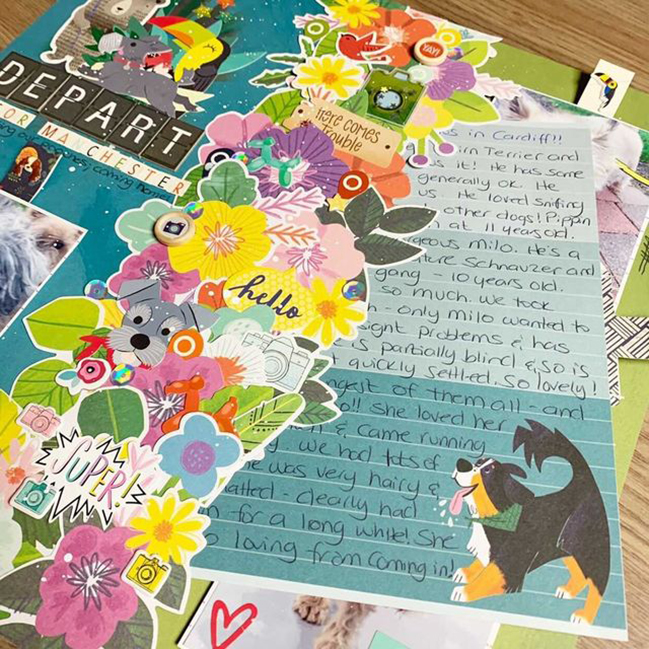 DEPART
FOR MANCHESTER
coming home!
YAY!
Here comes
trouble
hello
SUPER!
s in Cardiff!!
irn Terrier and
us it! He has some
generally ok. He
us. He loved sniffing
other dogs! Pippin
at 11 years old.
rgeous Milo. He's a
ture Schnauzer and
gang - 10 years old.
so much. We took
- only Milo wanted to
sight problems & has
is partially blind & so is
quickly settled. So lovely!
ngest of them all - and
o!! She loved her
& came running
we had lots of
he was very hairy &
matted - clearly had
n for a long while! She
loving from coming in!